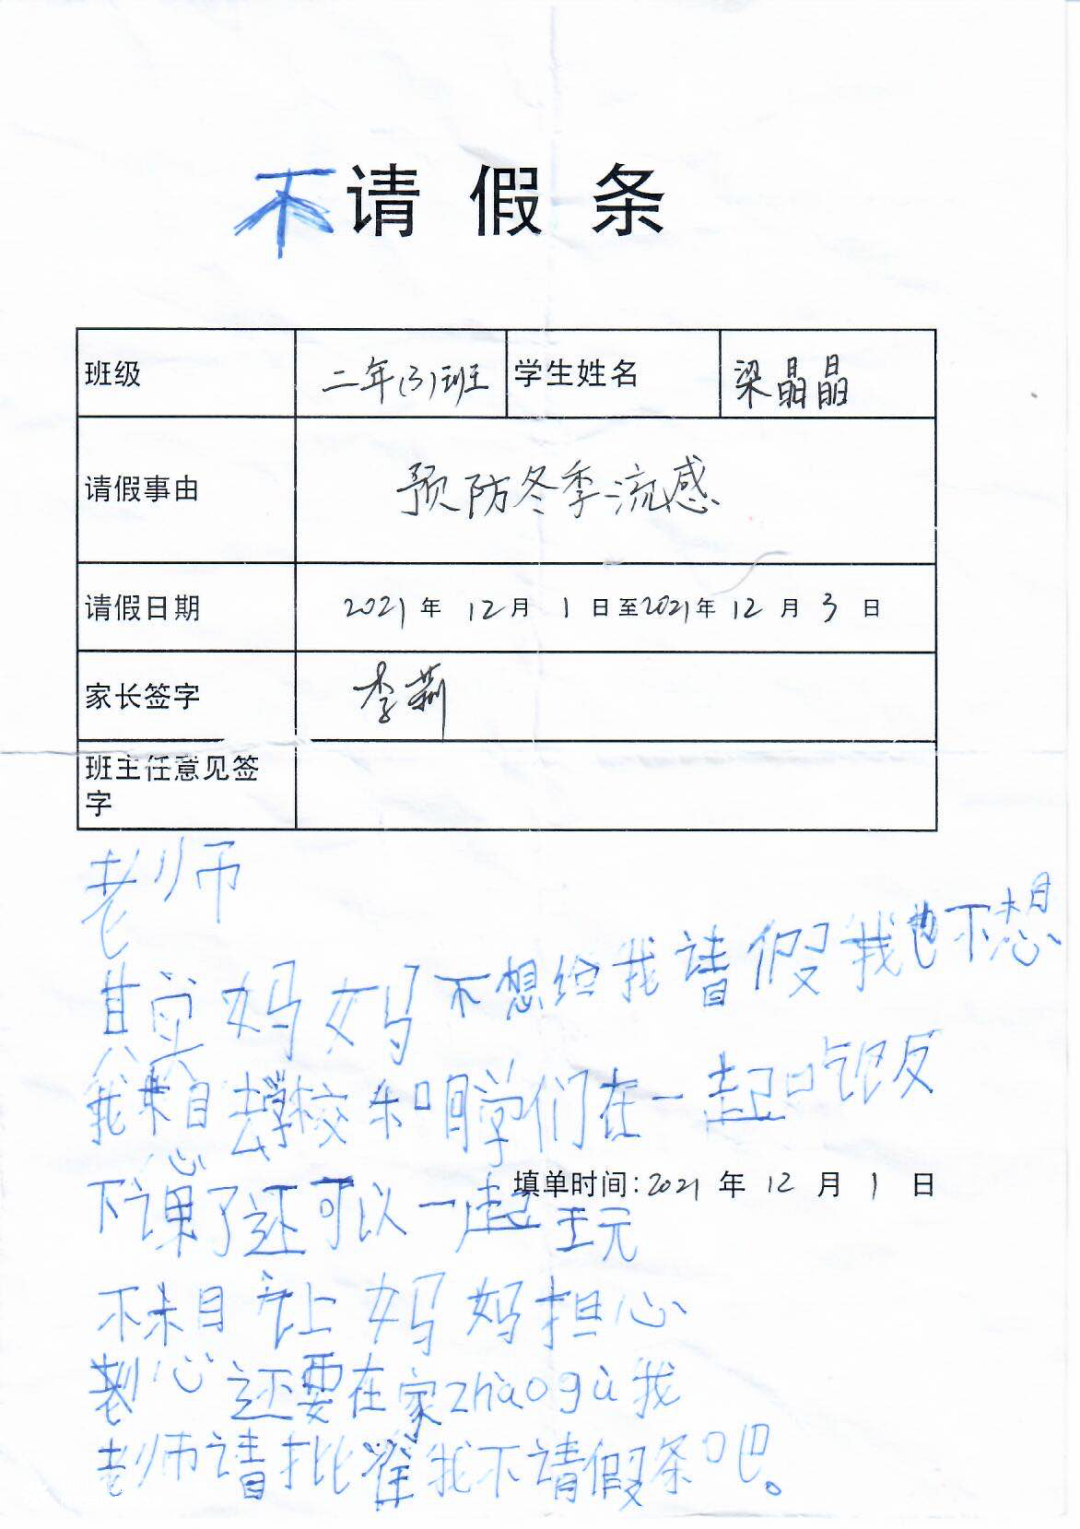 不请假条
班级 二年(3)班 学生姓名 梁晶晶
请假事由 预防冬季流感
请假日期 2021年 12月 1日至2021年 12月 3日
家长签字 李莉
班主任意见签
字
老师
其实妈妈不想给我请假我也不想
我想去学校和同学们在一起吃饭
填单时间:2021年 12月 1日
下课了还可以一起玩
不想让妈妈担心
还要在家zhàogù我
老师请批准我不请假条吧。